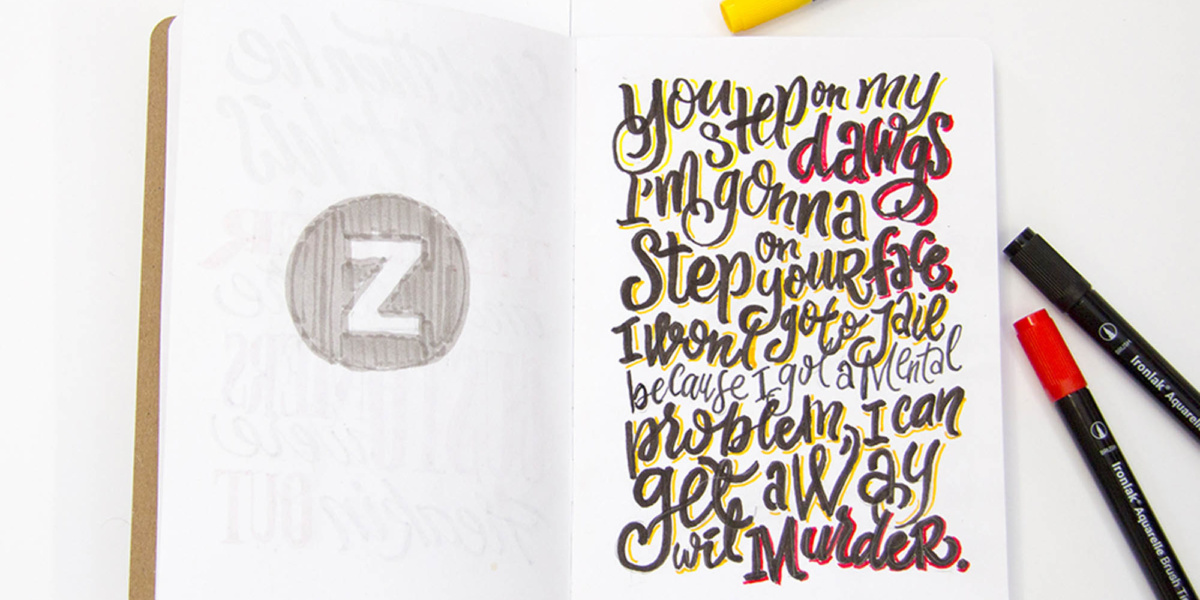 Z
You step on my
dawgs
I'm gonna
Step on your face.
I won't go to Jail
because I got a Mental
problem, I can
get away
wit Murder.
Ironlak® Aquarelle
Ironlak® Aquarelle Brush